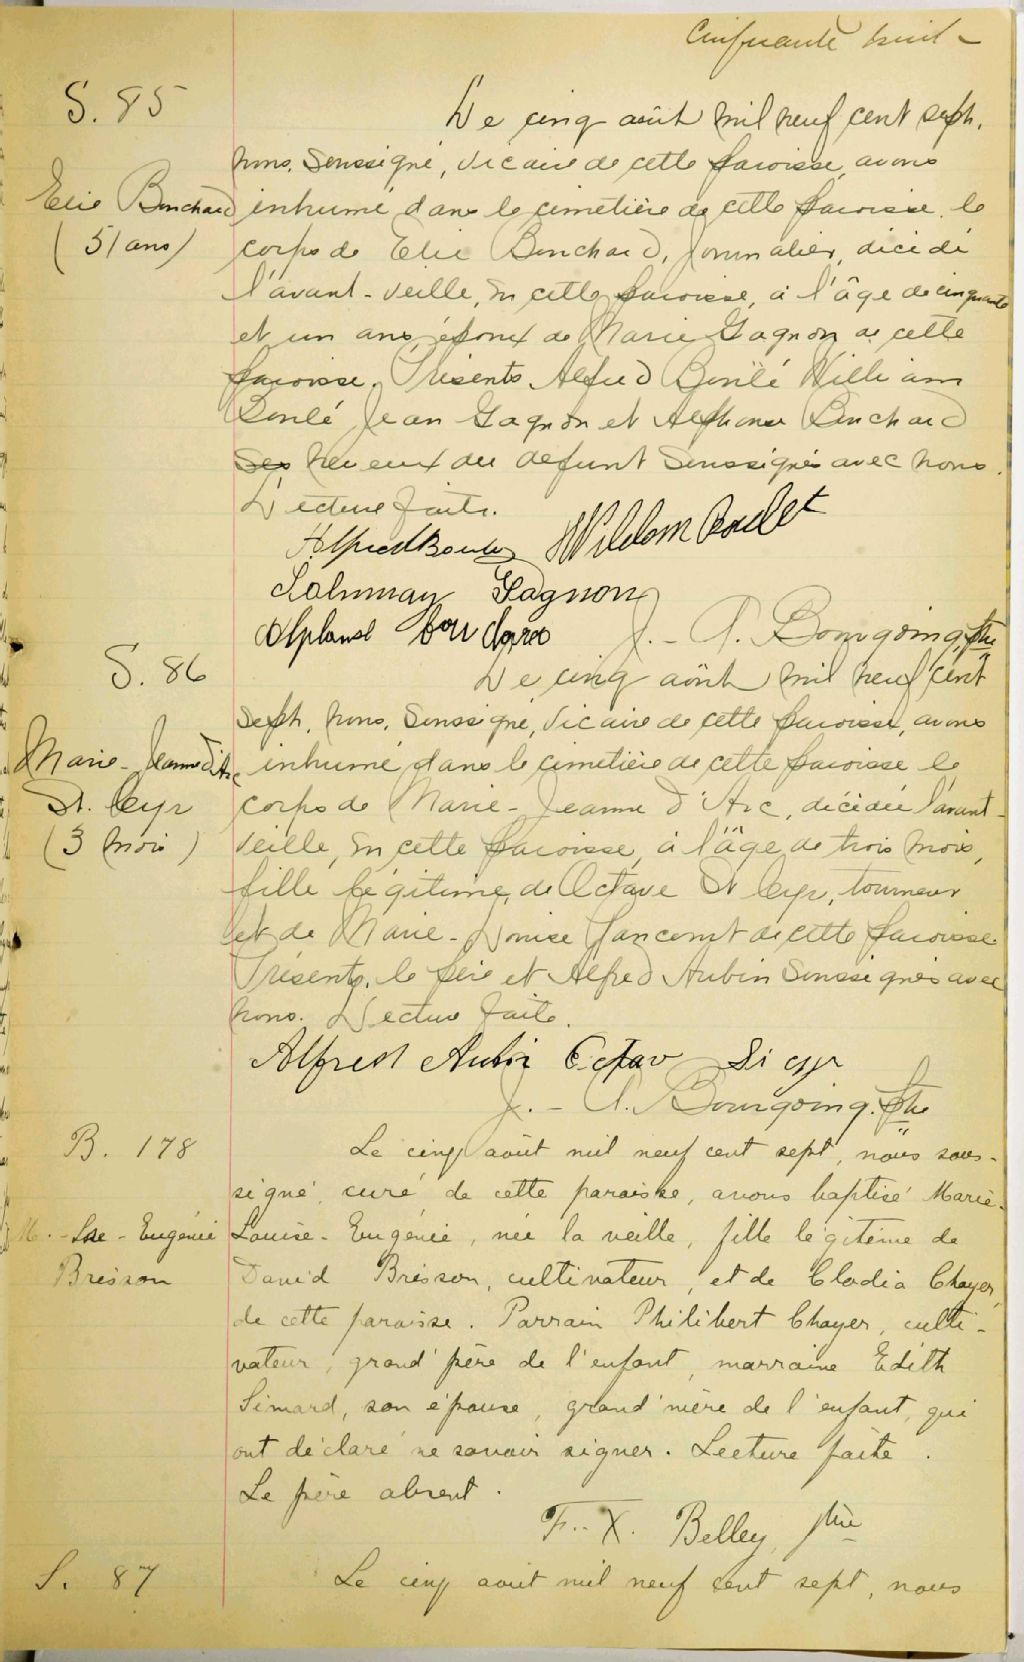 Cinquante huit -
S. 85
Le cinq août mil neuf cent sept,
nous, soussigné, vicaire de cette paroisse, avons
Elie Bouchard
(51 ans)
inhumé dans le cimetière de cette paroisse, le
corps de Elie Bouchard, journalier, décédé
l'avant-veille, en cette paroisse, à l'âge de cinquante
et un ans, époux de Marie Gagnon de cette
paroisse. Présents Alfred Boulé William
Boulé Jean Gagnon et Alphonse Bouchard
Ses neveux du défunt soussignés avec nous.
Lecture faite.
Alfred Boulay
Gagnon
Alphonse bouchard J.-A. Bourgoing, ptre
S. 86
Le cinq août mil neuf cent
sept, nous, soussigné, vicaire de cette paroisse, avons
Marie-Jeanne d'Arc
St. Cyr
(3 mois)
inhumé dans le cimetière de cette paroisse le
corps de Marie-Jeanne d'Arc, décédée l'avant-
veille, en cette paroisse, à l'âge de trois mois,
fille légitime, de Octave St Cyr, tourneur
et de Marie-Louise de cette paroisse
Présents, le père et Alfred Aubin soussignés avec
nous. Lecture faite.
Alfred Aubi Octav Si cyr
J.-A. Bourgoing. ptre
B. 178
Le cinq août mil neuf cent sept, nous sous-
signé, curé de cette paroisse, avons baptisé Marie-
M.-Lse-Eugénie
Brisson
Louise-Eugénie, née la veille, fille légitime de
David Brisson, cultivateur, et de Clodia Chayer,
de cette paroisse. Parrain Philibert Chayer, culti-
vateur, grand'père de l'enfant, marraine Edith
Simard, son épouse, grand'mère de l'enfant, qui
ont déclaré ne savoir signer. Lecture faite.
Le père absent.
F.-X. Belley, ptre
S. 87
Le cinq août mil neuf cent sept, nous